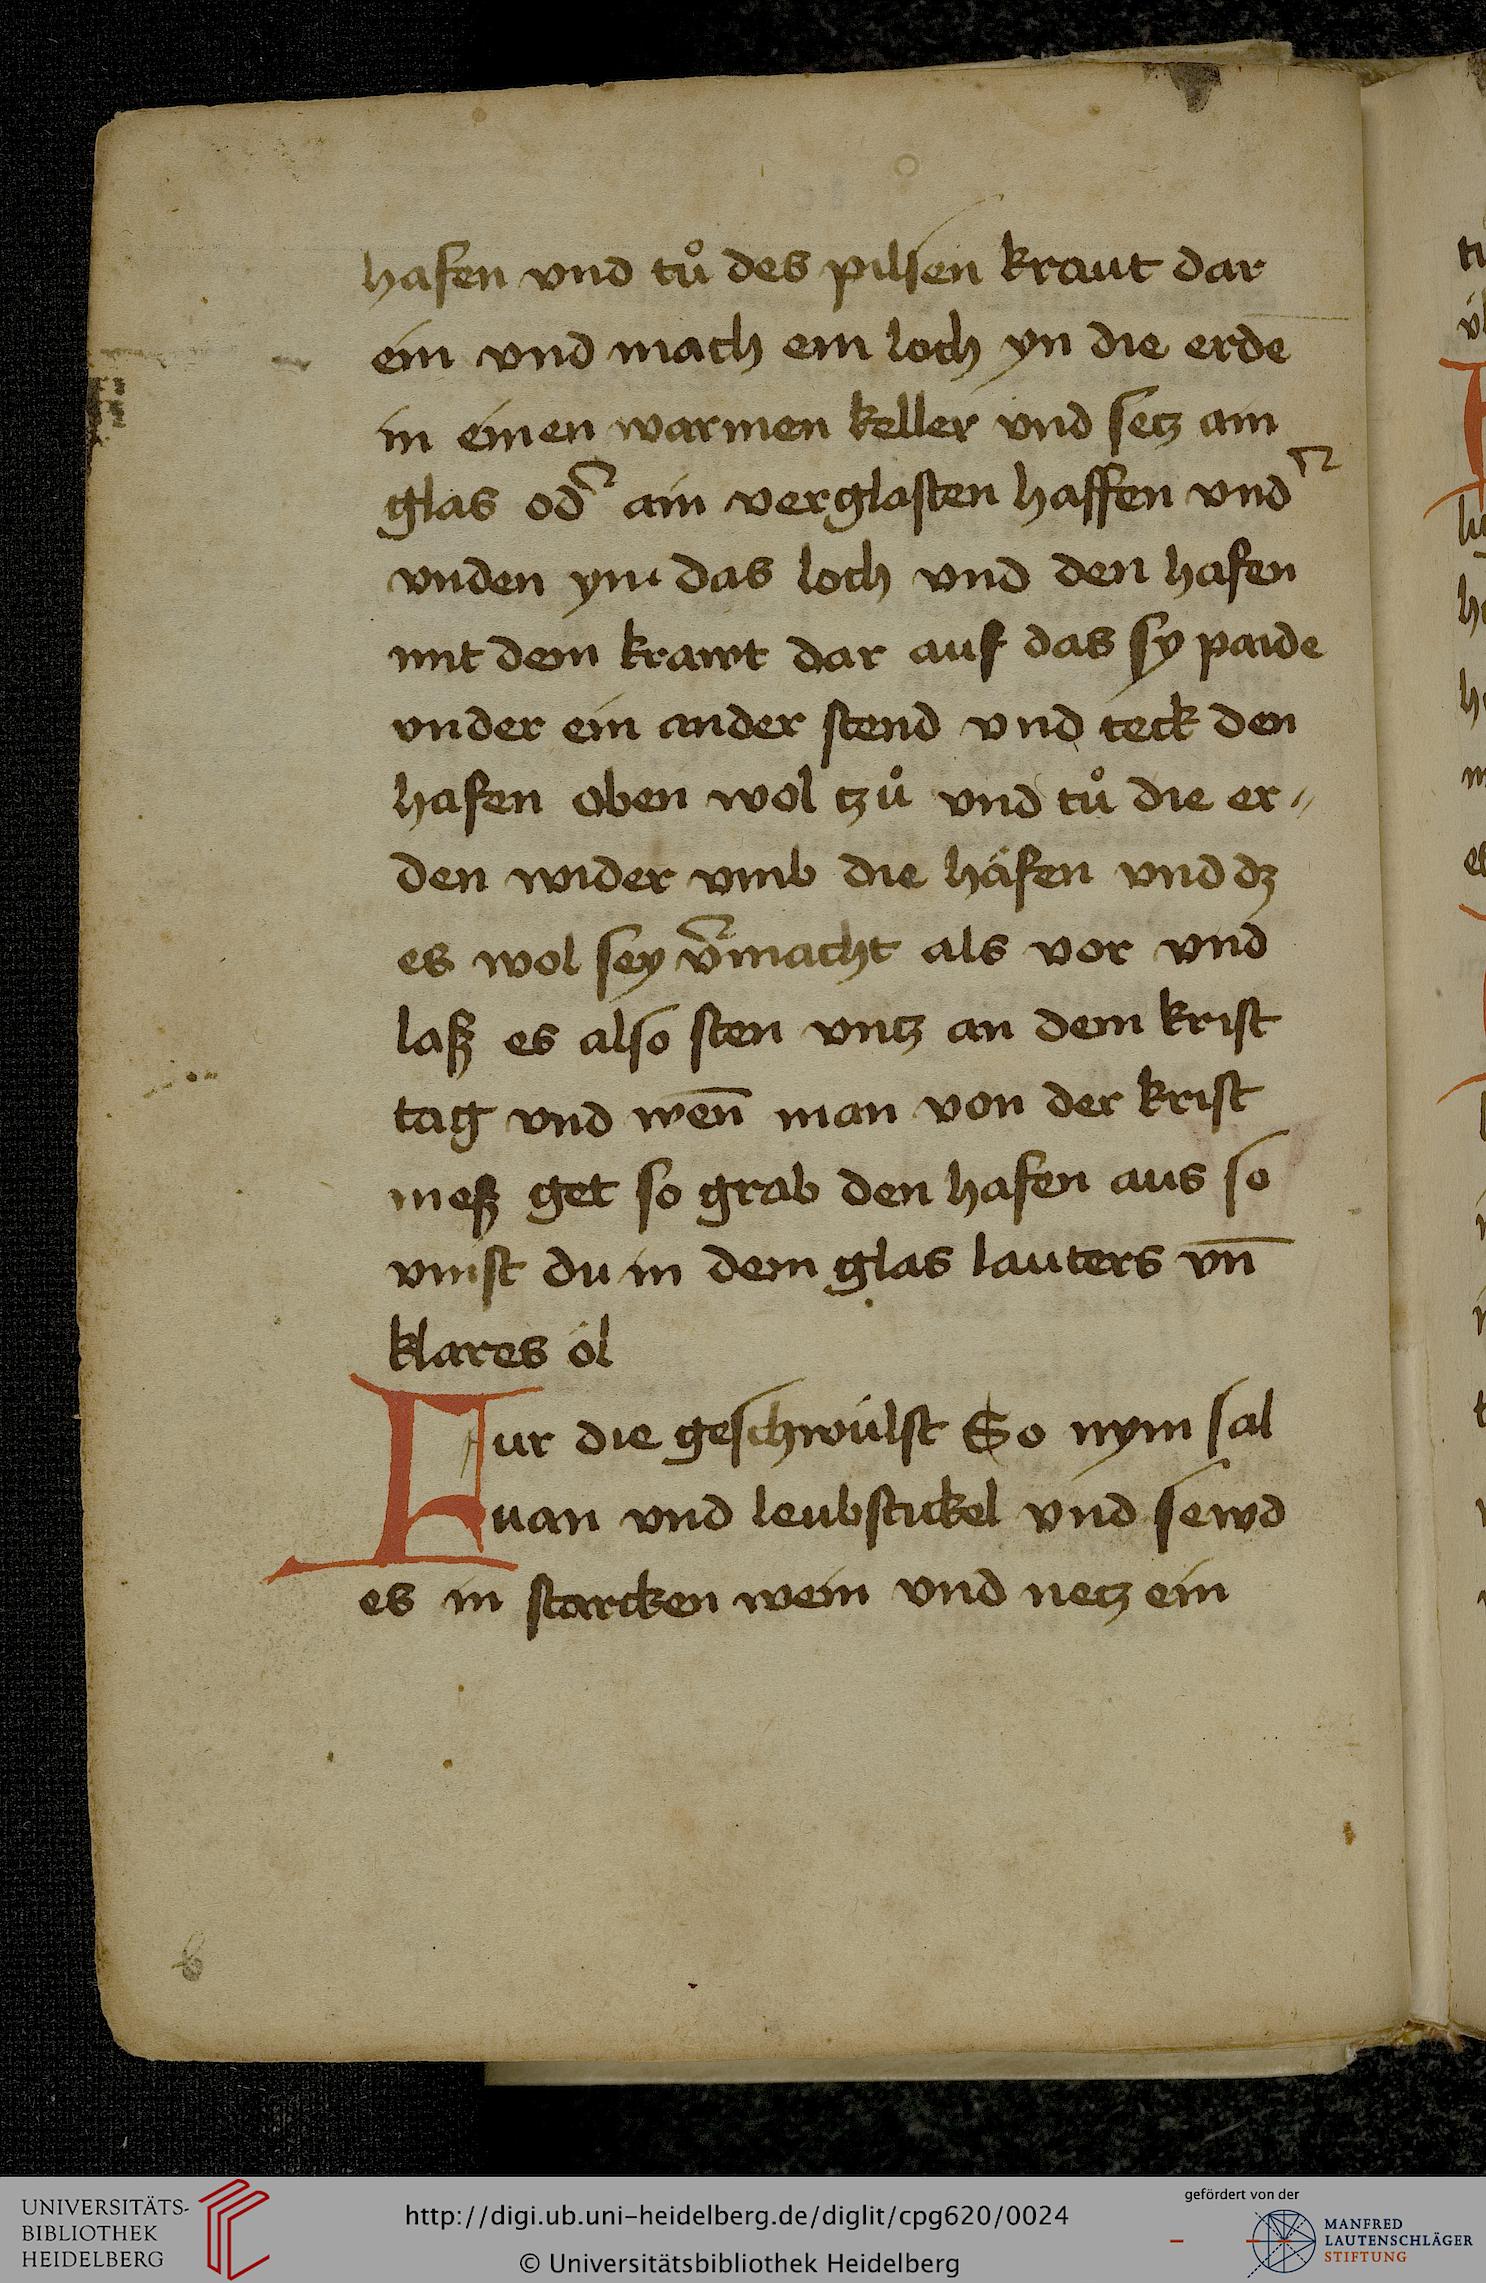 hafen vnd tů des pilsen kraut dar
ein vnd mach ein loch yn die erde
in einen warmen keller vnd setz ain
glas od͛ ain verglasten haffen vnd͛
vnden yn das loch vnd den hafen
mit dem krawt dar auf das sy paide
vnder ein ander stend vnd teck den
hafen oben wol tzů vnd tů die er〃
den wider vmb die häfen vnd dz
es wol sey v͛macht als vor vnd
laß es also sten vntz an dem krist
tag vnd wen̄ man von der krist
meß get so grab den hafen aus so
vinst du in dem glas lauters vn̄
klares öl
Fur die geschwülst So nym sal
uan vnd leubstickel vnd sewd
es in starcken wein vnd netz ein
UNIVERSITÄTS-
BIBLIOTHEK
HEIDELBERG
http://digi.ub.uni-heidelberg.de/diglit/cpg620/0024
© Universitätsbibliothek Heidelberg
gefördert von der
MANFRED
LAUTENSCHLÄGER
STIFTUNG